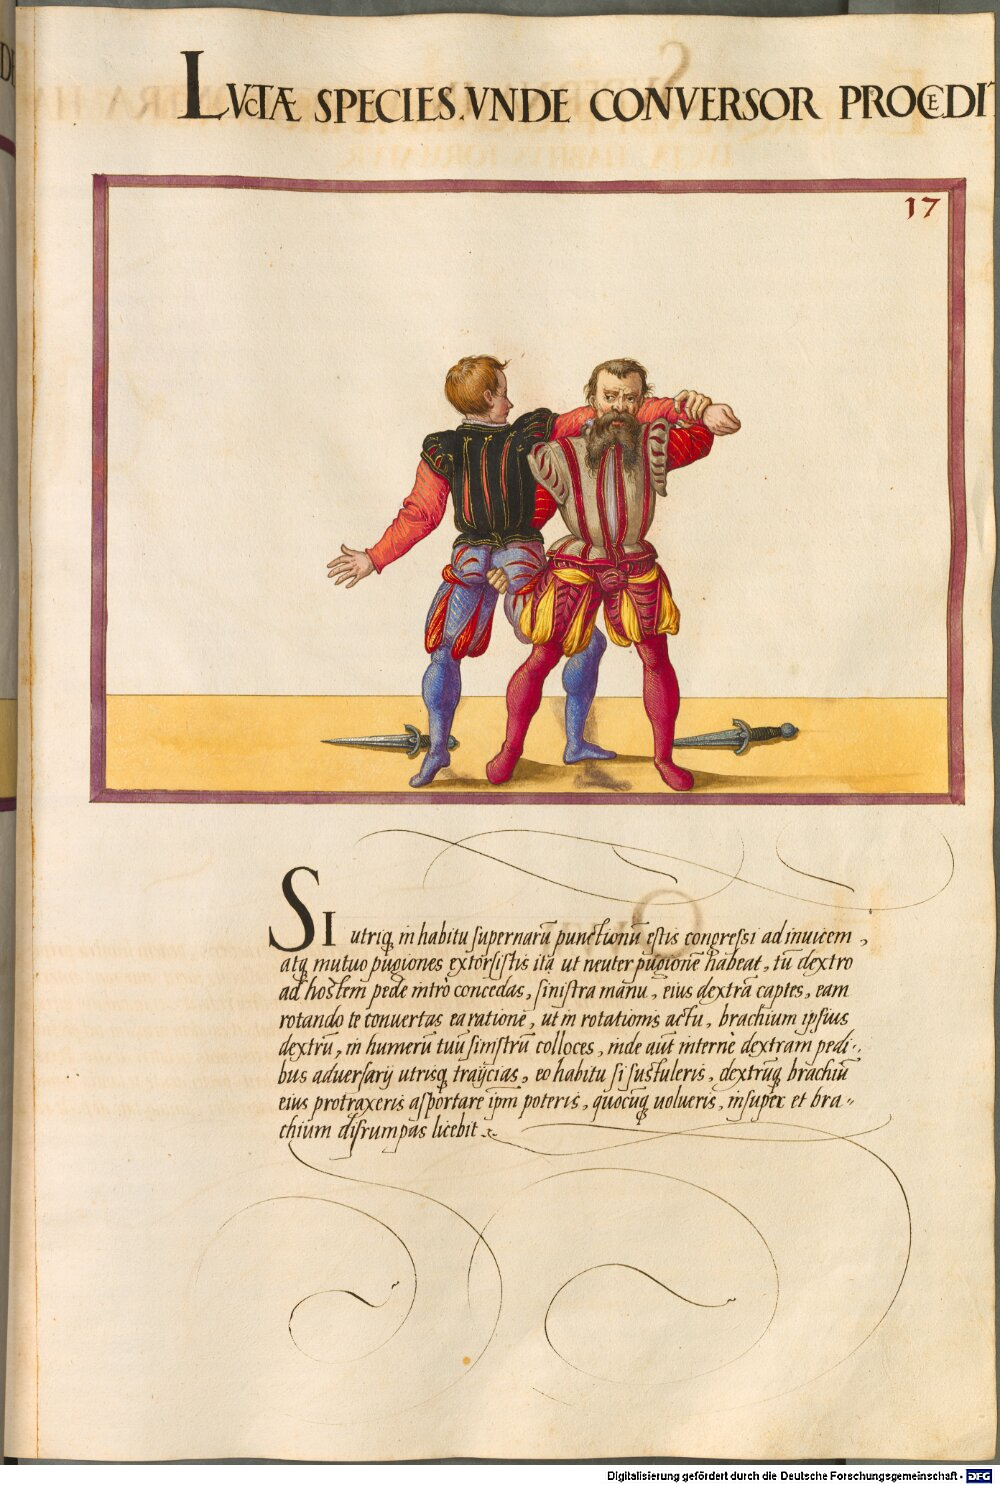 LVCTÆ SPECIES. VNDE CONVERSOR PROCEDIT
17
SI utriq in habitu supernarū punctionū estis congressi ad inuicem,
atq mutuo pugiones extorsistis ita ut neuter pugionē habeat, tū dextro
ad hostem pede intrò concedas, sinistra manu, eius dextrā captes, eam
rotando te conuertas ea ratione, ut in rotationis actu, brachium ipsius
dextrū, in humerū tuū sinistrū colloces, inde aūt internè dextram pedi-
bus aduersarij utrisq traijcias, eo habitu si sustuleris, dextrūq brachiū
eius protraxeris asportare ipm poteris, quocūq uolueris, insuper et bra-
chium disrumpas licebit.
Digitalisierung gefördert durch die Deutsche Forschungsgemeinschaft - DFG